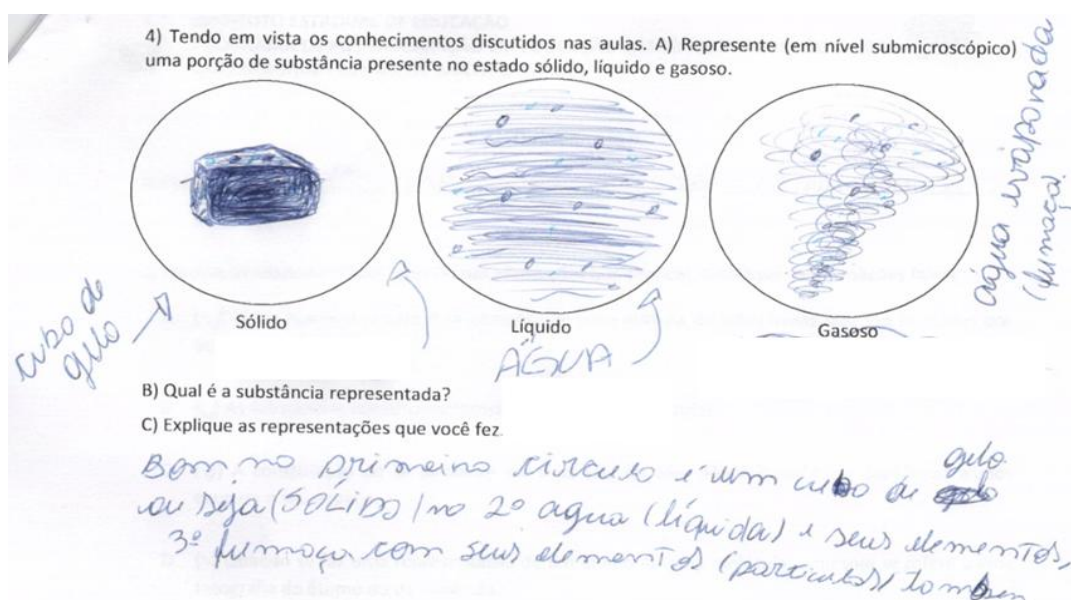 4) Tendo em vista os conhecimentos discutidos nas aulas. A) Represente (em nível submicroscópico)
uma porção de substância presente no estado sólido, líquido e gasoso.
cubo de
gelo
Sólido
Líquido
ÁGUA
Gasoso
agua evaporada
(fumaça)
B) Qual é a substância representada?
C) Explique as representações que você fez.
Bom no primeiro circulo é um cubo de gelo
ou seja (SÓLIDO) no 2º agua (líquida) e seus elementos,
3º fumaça com seus elementos (particulas) tambem